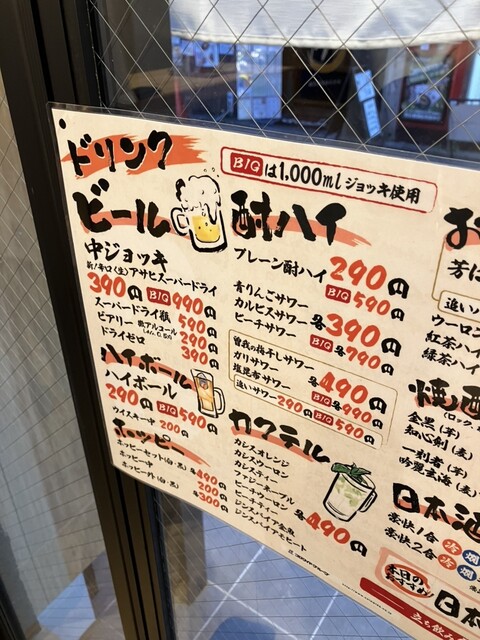 ドリンク
BIGは1,000mlジョッキ使用
ビール
中ジョッキ
新!辛口〈生〉アサヒスーパードライ
390円 BIG 990円
スーパードライ瓶 590円
ビアリー 微アルコール 290円
ドライゼロ 390円
ハイボール
ハイボール
290円 BIG 590円
ウイスキー中 200円
ホッピー
ホッピーセット(白・黒) 各490円
ホッピー中 200円
ホッピー外(白・黒) 各300円
酎ハイ
プレーン酎ハイ 290円
BIG 590円
青りんごサワー
カルピスサワー
ピーチサワー
各390円
BIG 各790円
曽我の梅干しサワー
ガリサワー
塩昆布サワー
各490円
BIG 各990円
追いサワー 290円 BIG 590円
カクテル
カシスオレンジ
カシスウーロン
カシスティー
ファジーネーブル
ピーチウーロン
ピーチティー
ジンスパイア金魚
ジンスパイアモヒート
各490円
お
芳
追い
ウーロン
紅茶ハイ
緑茶ハイ
焼酎
(ロック、
金黒(芋)
知心剣(麦)
一刻者(芋)
吟麗玄海(麦)
日本酒
豪快1合 冷 燗
豪快2合 冷 燗
本日の
日本
立ち飲み